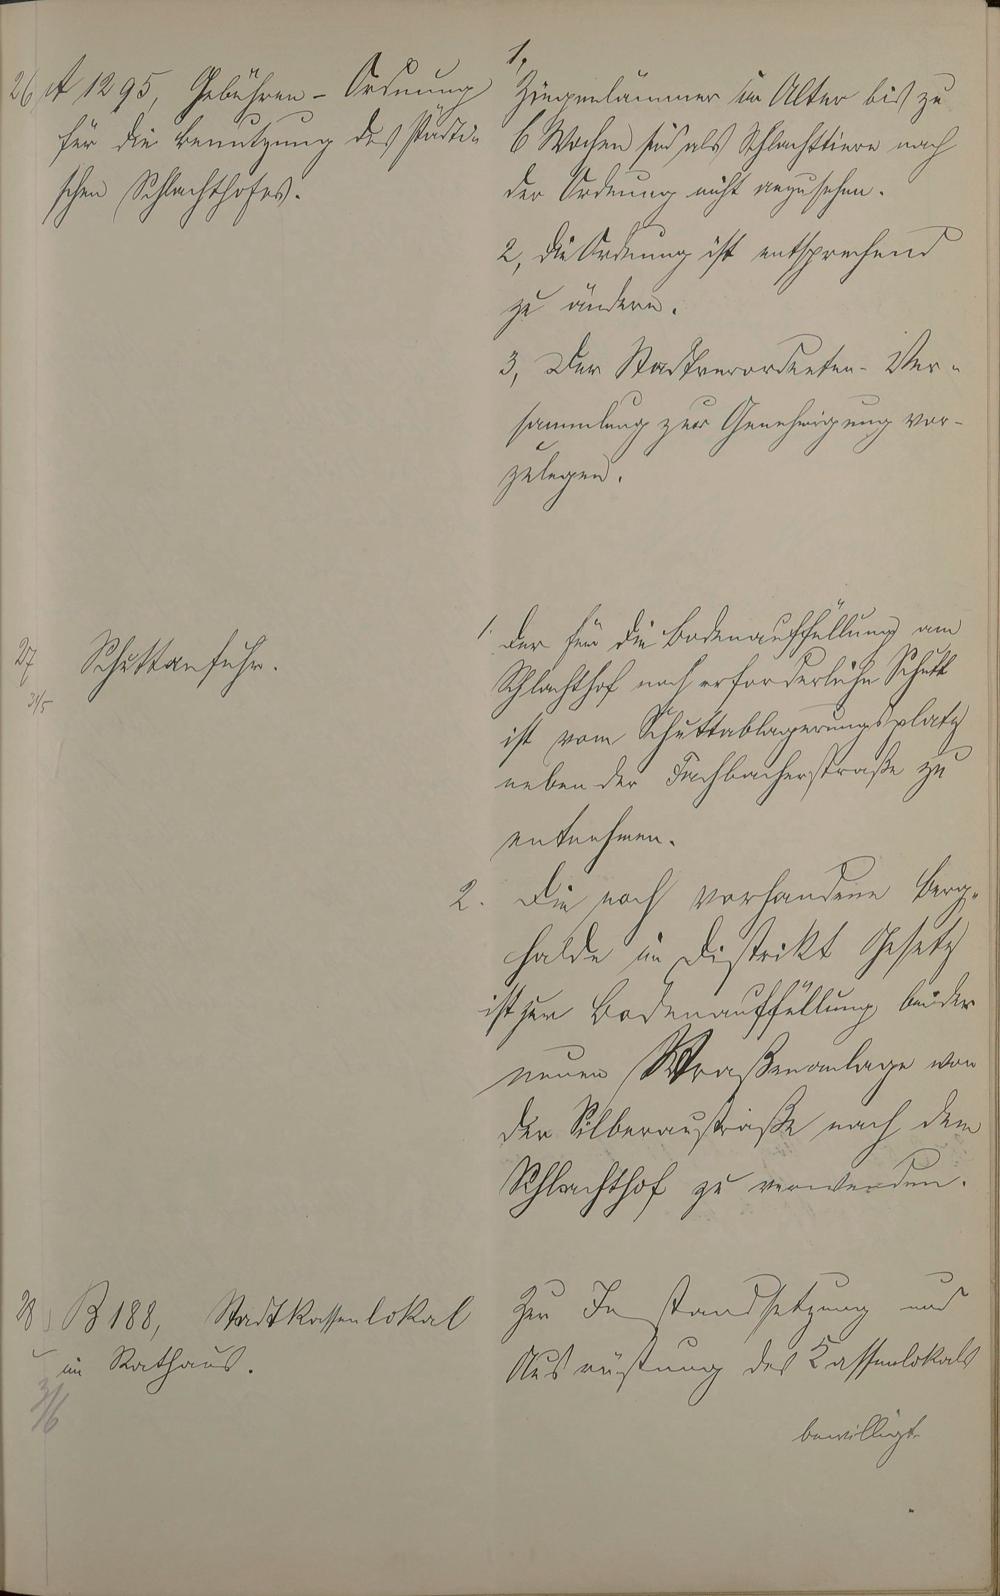 26 A 1295, Gebühren-Ordnung
für die Benutzung des städti-
schen Schlachthofes.
1,
Ziegenlämmer im Alter bis zu
6 Wochen sind als Schlachttiere nach
der Ordnung nicht anzusehen.
2, die Ordnung ist entsprechend
zu ändern.
3, Der Stadtverordneten-Ver-
sammlung zur Genehmigung vor-
zulegen.
27 Schuttanfuhr.
31/5
1. Der für die Bodenauffüllung am
Schlachthof noch erforderliche Schutt
ist vom Schuttablagerungsplatz
neben der Fachbacherstraße zu
entnehmen.
2. Die noch vorhandene Berg-
halde im Distrikt Gesetz
ist zur Bodenauffüllung bei der
neuen Straßenanlage von
der Silberaustraße nach dem
Schlachthof zu verwenden.
28 B 188, Stadtkassenlokal
im Rathaus.
3/6
Zur Instandsetzung und
Ausrüstung des Kassenlokals
bewilligt